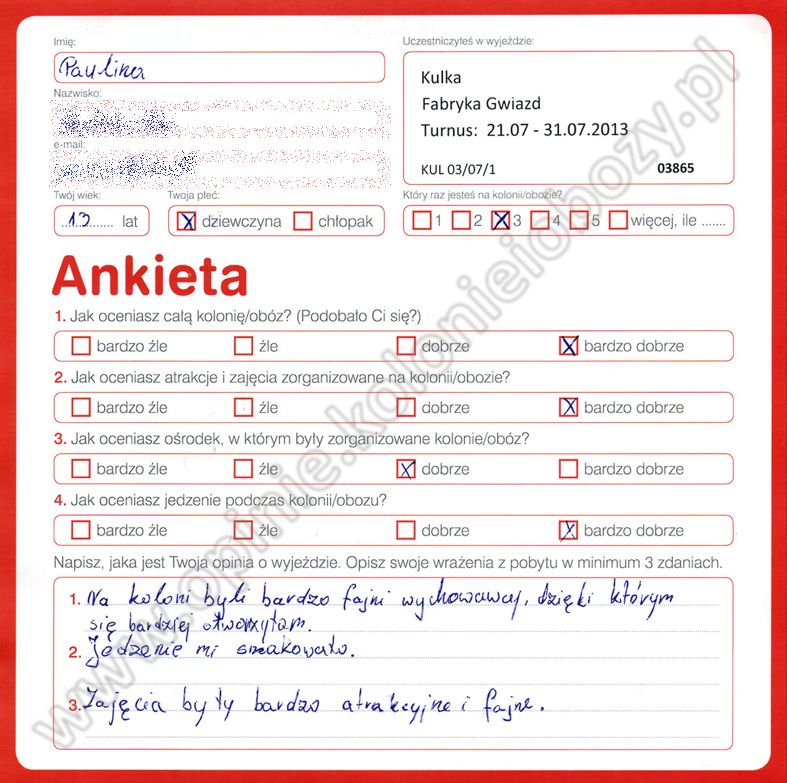 Imię:
Uczestniczyłeś w wyjeździe:
Paulina
Kulka
Fabryka Gwiazd
Turnus: 21.07 - 31.07.2013
KUL 03/07/1 03865
Nazwisko:
e-mail:
Twój wiek:
Twoja płeć:
Który raz jesteś na kolonii/obozie?
13 lat
X dziewczyna chłopak
1 2 X 3 4 5 więcej, ile .......
Ankieta
1. Jak oceniasz całą kolonię/obóz? (Podobało Ci się?)
bardzo źle źle dobrze X bardzo dobrze
2. Jak oceniasz atrakcje i zajęcia zorganizowane na kolonii/obozie?
bardzo źle źle dobrze X bardzo dobrze
3. Jak oceniasz ośrodek, w którym były zorganizowane kolonie/obóz?
bardzo źle źle X dobrze bardzo dobrze
4. Jak oceniasz jedzenie podczas kolonii/obozu?
bardzo źle źle dobrze X bardzo dobrze
Napisz, jaka jest Twoja opinia o wyjeździe. Opisz swoje wrażenia z pobytu w minimum 3 zdaniach.
1. Na koloni byli bardzo fajni wychowawcy, dzięki którym
się bardziej otworzyłam.
2. Jedzenie mi smakowało.
3. Zajęcia były bardzo atrakcyjne i fajne.
www.opinie.kolonieiobozy.pl